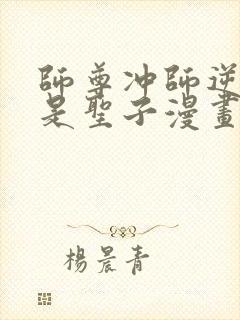 師尊冲師逆
是聖子漫畫
楊晨青